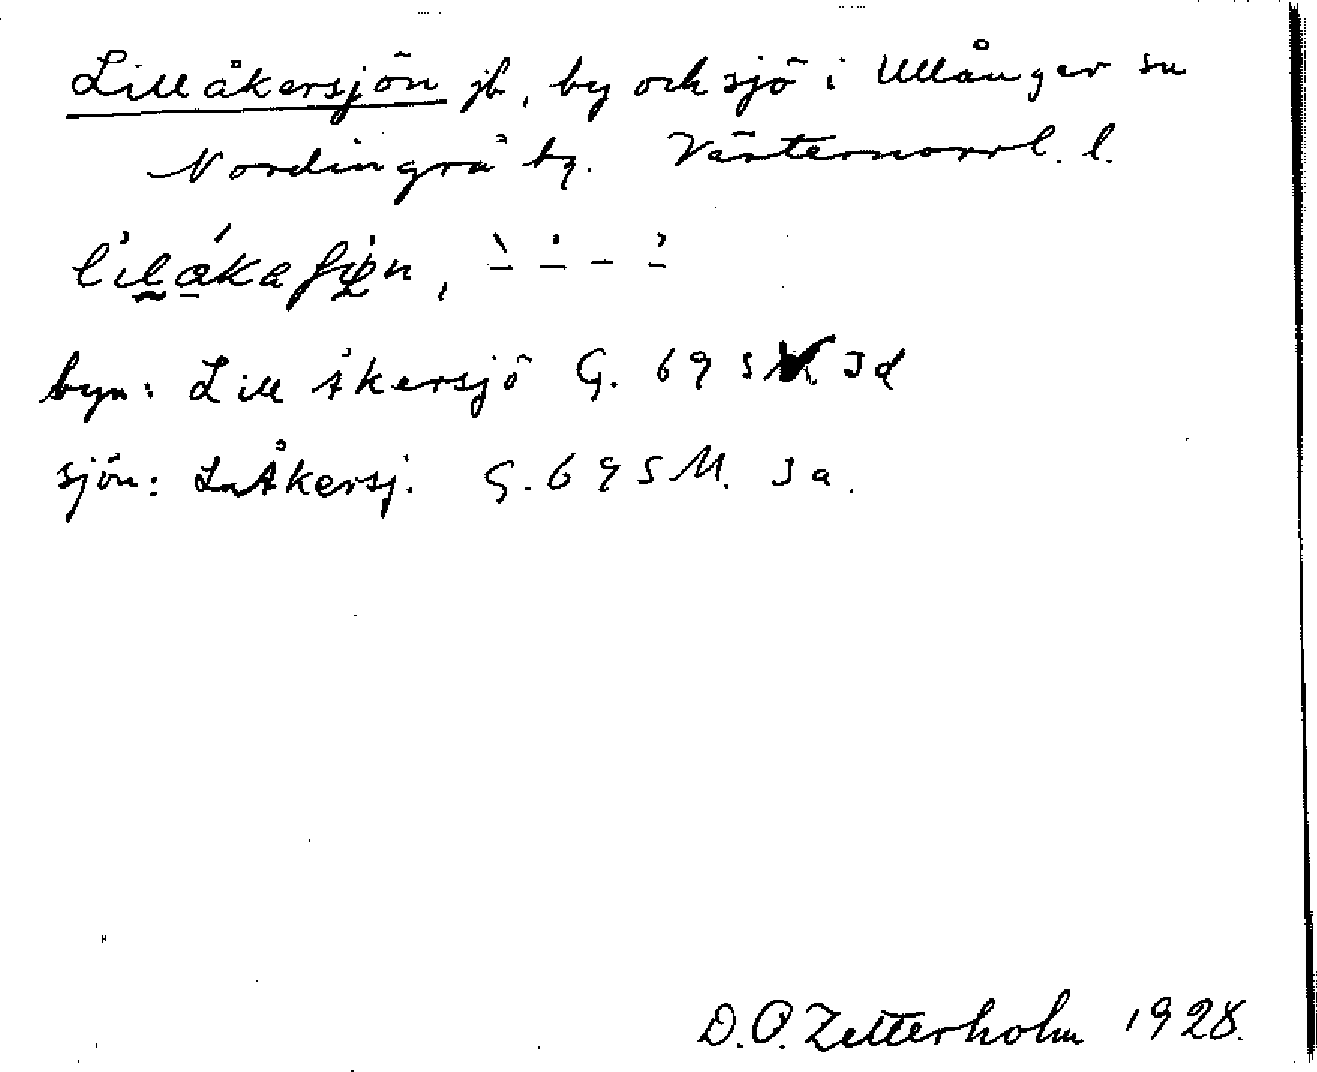 Lillåkersjön jb, by och sjö i Ullånger sn
Nordingrå tg. Västernorrl. l.
byn: Lill Åkersjö G. 69 S Jd
sjön: L. Åkersj. G. 69 SM. Ja.
D.O. Zetterholm 1928.